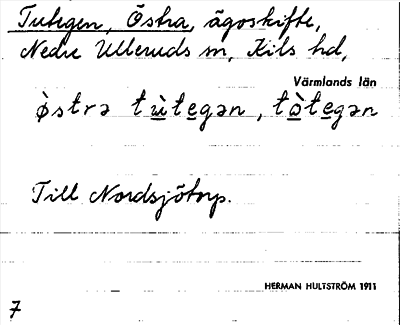 Tutegen, Östra, ägoskifte,
Nedre Ulleruds sn, Kils hd,
Värmlands län
òstra tùtegən, tòtegən
Till Nordsjötorp.
HERMAN HULTSTRÖM 1911
7